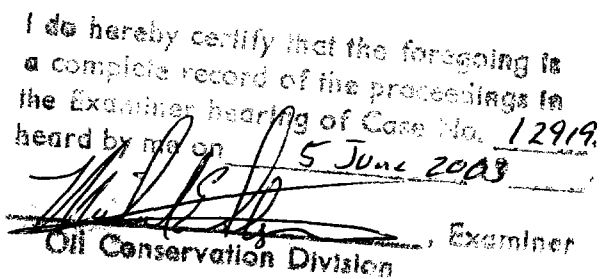 I do hereby certify that the foregoing is
a complete record of the proceedings in
the Examiner hearing of Case No. 12919.
heard by me on 5 June 2003.
, Examiner
Oil Conservation Division